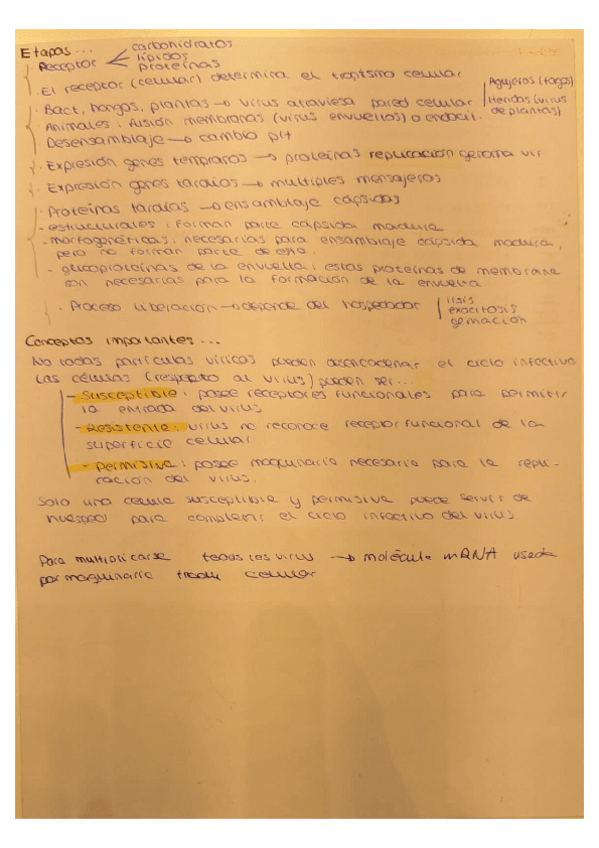 Etapas...
carbohidratos
· Receptor < lípidos
proteínas
· El receptor (celular) determina el tropismo celular
· Bact, hongos, plantas → virus atraviesa pared celular | Agujeros (fagos)
Heridas (virus de plantas)
Animales: fusión membranas (virus envueltos) o endocit.
Desensamblaje → cambio pH
· Expresión genes tempranos → proteínas replicación genoma vir
· Expresión genes tardíos → multiples mensajeros
· Proteínas tardías → ensamblaje cápsidas
- estructurales: forman parte cápsida madura
- morfogenéticas: necesarias para ensamblaje cápsida madura,
pero no forman parte de esta.
- glucoproteínas de la envuelta: estas proteínas de membrana
son necesarias para la formación de la envuelta
· Proceso liberación → depende del hospedador | lisis
exocitosis
gemación
Conceptos importantes...
No todas partículas víricas pueden desencadenar el ciclo infectivo
Las células (respecto al virus) pueden ser...
- Susceptible: posee receptores funcionales para permitir
la entrada del virus
- Resistente: virus no reconoce receptor funcional de la
superficie celular
- Permisiva: posee maquinaria necesaria para la repli-
cación del virus.
Solo una celula susceptible y permisiva puede servir de
huesped para completar el ciclo infectivo del virus.
Para multiplicarse todos los virus → molécula mRNA usada
por maquinaria tradu celular